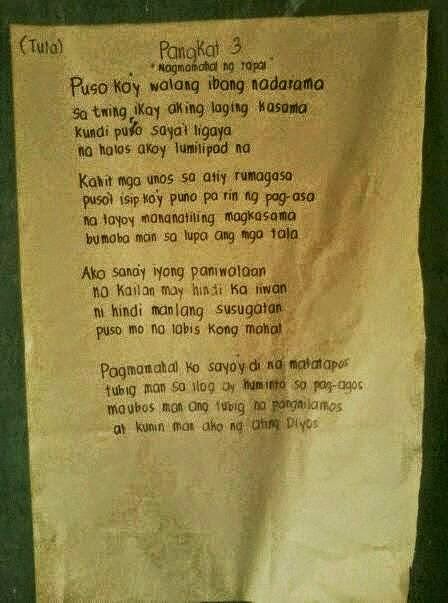 (Tula)
Pangkat 3
"Nagmamahal ng tapat"
Puso ko'y walang ibang nadarama
sa twing ika'y aking laging kasama
kundi puro saya't ligaya
na halos ako'y lumilipad na
Kahit mga unos sa ati'y rumagasa
puso't isip ko'y puno pa rin ng pag-asa
na tayo'y mananatiling magkasama
bumaba man sa lupa ang mga tala
Ako sana'y iyong paniwalaan
na kailan may hindi ka iiwan
ni hindi manlang susugatan
puso mo na labis kong mahal
Pagmamahal ko sayo'y di na matatapos
tubig man sa ilog ay huminto sa pag-agos
maubos man ang tubig na panghilamos
at kunin man ako ng ating Diyos